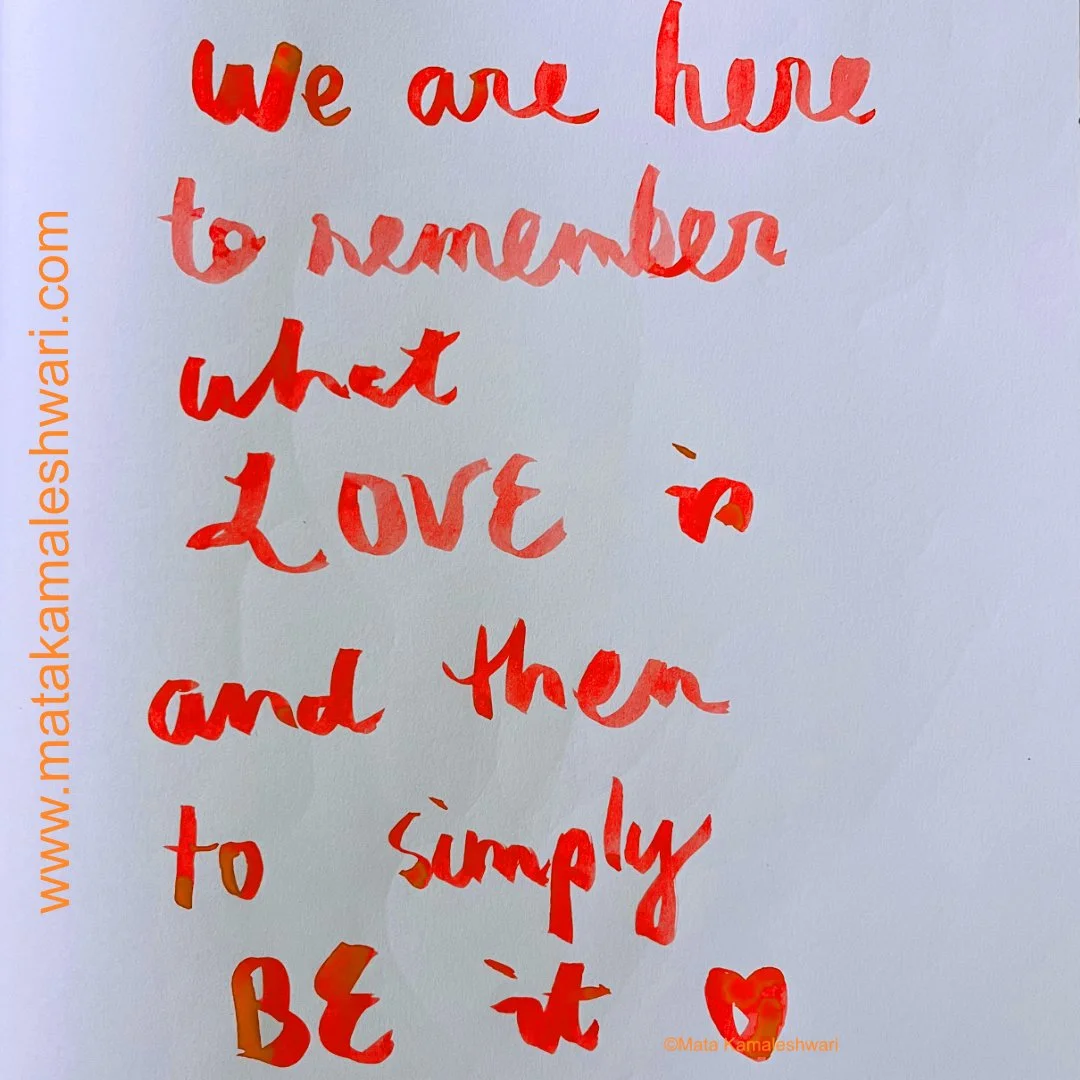 We are here
to remember
what
LOVE is
and then
to simply
BE it
©Mata Kamaleshwari
www.matakamaleshwari.com